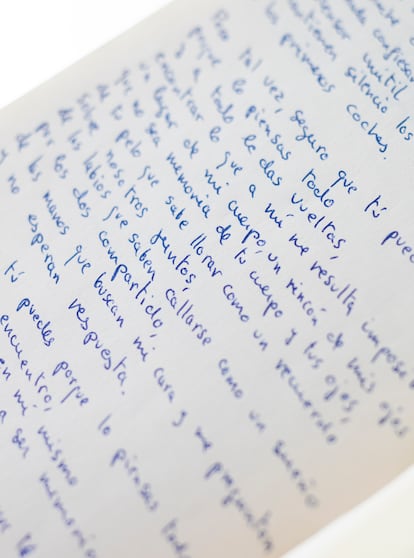 confieso
pensar inútil
silencio los
los primeros coches.
Pero tal vez, seguro que tú pued
porque lo piensas todo
y a todo le das vueltas,
encontrar lo que a mí me resulta imposi
un lugar de mi cuerpo, un rincón de mis ojos
que no sea memoria de tu cuerpo y tus ojos,
de tu pelo que sabe llorar como un recuerdo
sobre nosotros juntos,
de los labios que saben callarse como un sueño
por los dos compartido,
de las manos que buscan mi cara y me preguntan
y no esperan respuesta.
tú puedes porque lo piensas todo
encuentro,
en mí mismo
a ser memoria